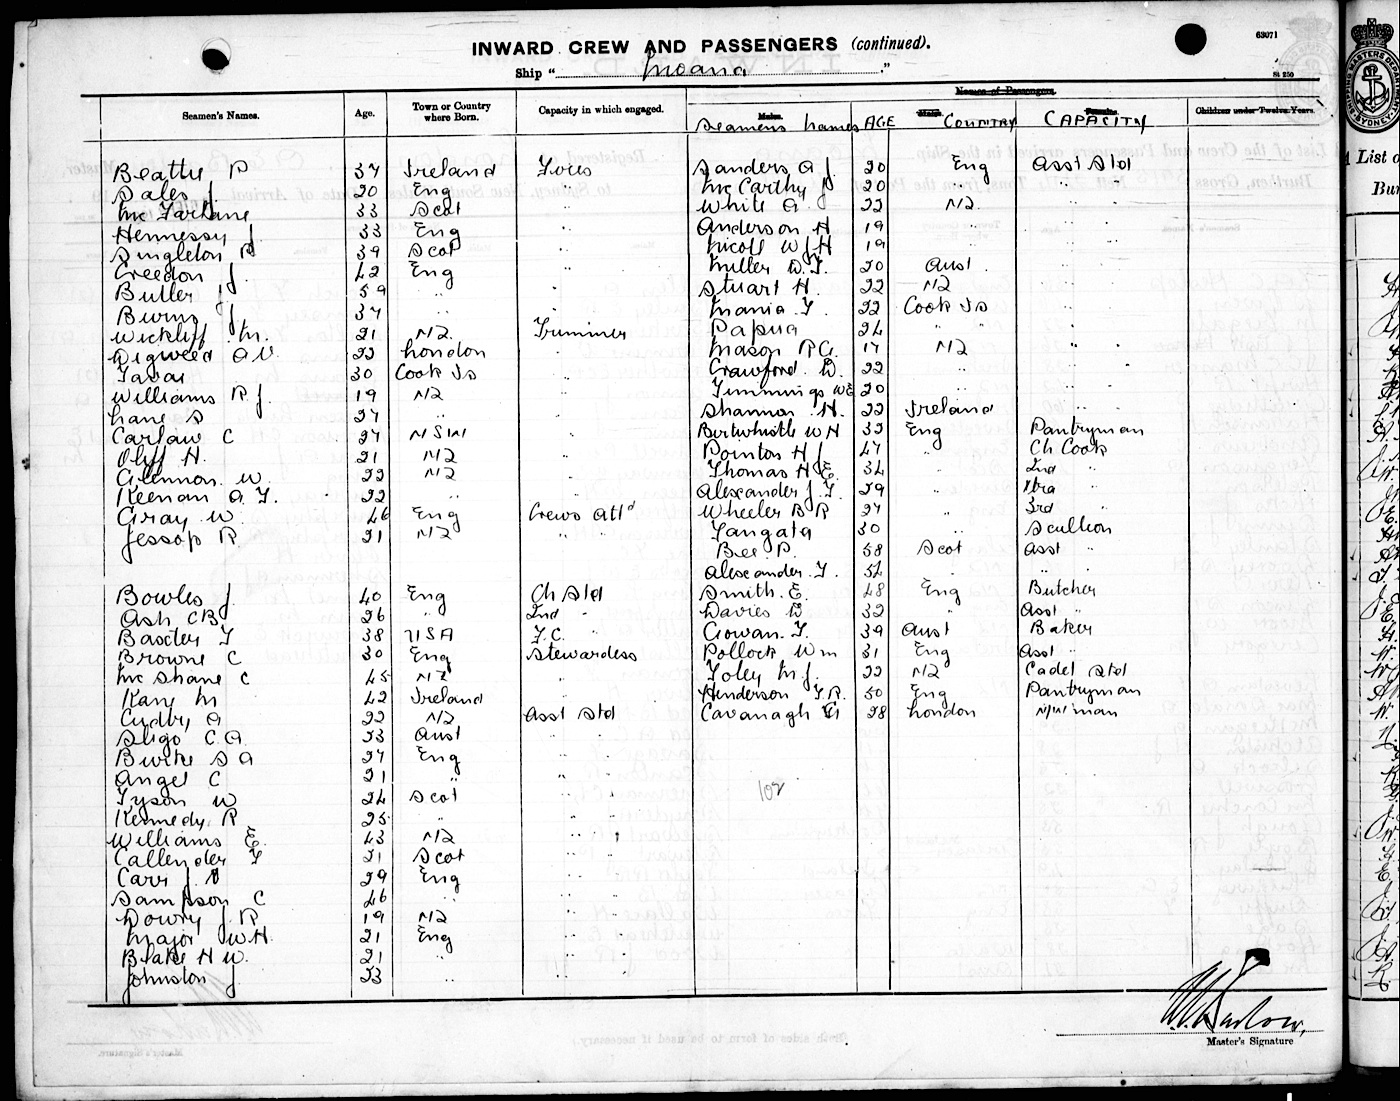 INWARD CREW AND PASSENGERS (continued).
63071
St 250
Ship " Moana "
Names of Passengers.
Seamen's Names. Age. Town or Country where Born. Capacity in which engaged. Seamens Names AGE COUNTRY CAPACITY Children under Twelve Years.
Beattie P 37 Ireland Fires Sanders A J. 20 Eng Asst Std
Sales J 20 Eng " McCarthy P 20 " " "
McFarlane 33 Scot " White A. 22 NZ " "
Hennessy J 33 Eng " Anderson H 19 " " "
Singleton P 39 Scot " Nicoll W J H 19 " " "
Creedon J. 42 Eng " Miller D. F. 20 Aust " "
Butler J. 59 " " Stuart H. 22 NZ " "
Burns J 37 " " Mania F. 22 Cook Is " "
Wickliff M. 21 NZ. Trimmer Papua 24 " " " "
Digweed A V. 22 London " Mason R G. 17 NZ " "
Tavai 30 Cook Is " Crawford D. 22 " " "
Williams R J. 19 NZ " Timmings W E 20 " " "
Lane S 27 " " Shannon H. 22 Ireland " "
Carlaw C 27 NSW " Birtwhistle W H 32 Eng Pantryman
Oliff H. 21 NZ " Pointon H J 47 " Ch Cook
Glennon. W. 22 NZ " Thomas H E. 34 " 2nd "
Keenan A. F. 22 " " Alexander J. F. 29 " Xtra "
Gray W. 46 Eng Crews Attd Wheeler B R 27 " 3rd "
Jessop R. 21 NZ " " Tangata 30 " Scullion
Bee P. 58 Scot Asst "
Alexander. F. 54 " "
Bowles J. 40 Eng Ch Std Smith. E. 48 Eng Butcher
Ash C B 26 " 2nd " Davies D 32 " Asst "
Baxter F 38 USA F. C. " Gowan. F. 39 Aust Baker
Browne C 30 Eng Stewardess Pollock Wm 31 Eng Asst "
McShane C 45 NZ " Foley M. J. 22 NZ Cadet Std
Kane M 42 Ireland " Henderson F. R. 50 Eng Pantryman
Cudby A 22 NZ Asst Std Cavanagh 28 London man
Sligo C. A. 23 Aust " "
Burke S A 27 Eng " "
Angel C 21 " " "
Tyson W 24 Scot " "
Kennedy R 25 " " "
Williams E. 43 NZ " "
Callender F 21 Scot " "
Carr J. 29 Eng " "
Sampson C 46 " " "
Dowry J. R 19 NZ " "
Major W H. 21 Eng " "
Blake H W. 21 " " "
Johnston J 23 " " "
102
Master's Signature